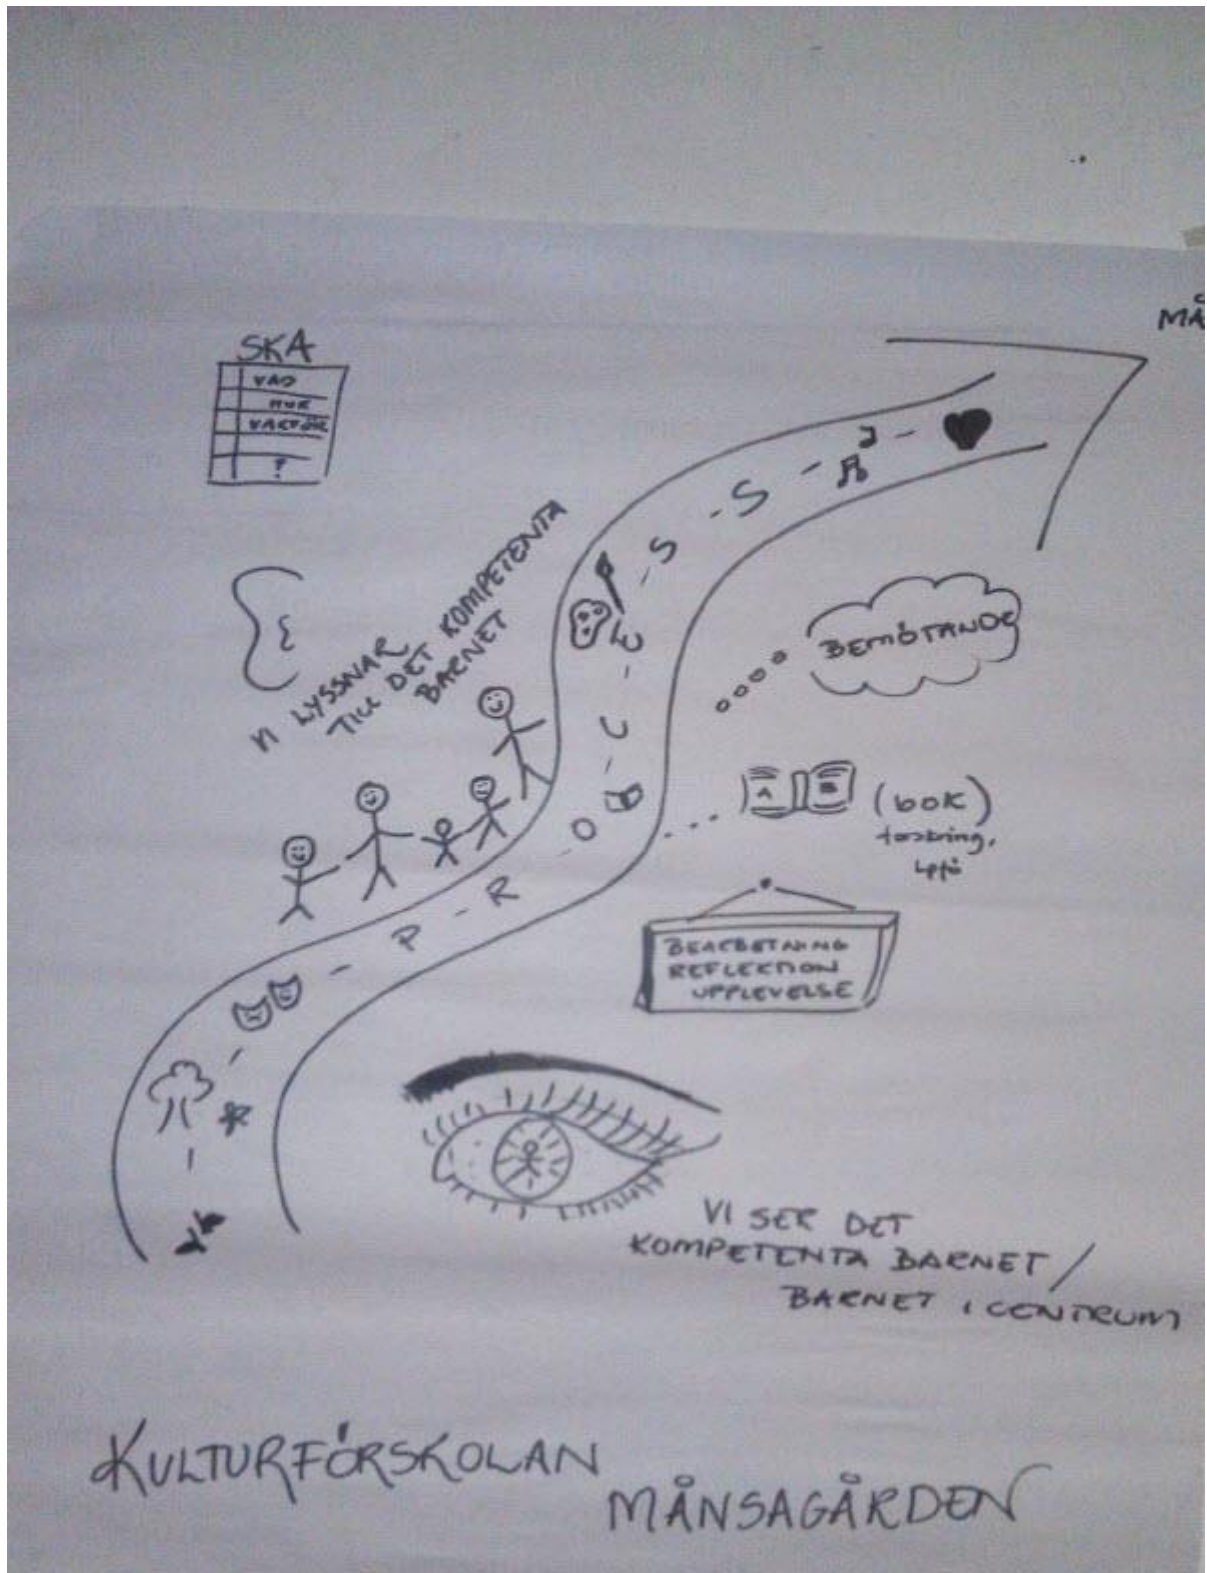 MÅ
SKA
VAD
HUR
VARFÖR
?
VI LYSSNAR
TILL DET KOMPETENTA
BARNET
P - R - O - C - E - S - S -
BEMÖTANDE
A B
(bok)
forskning,
Lpfö
BEARBETNING
REFLEKTION
UPPLEVELSE
VI SER DET
KOMPETENTA BARNET /
BARNET I CENTRUM
KULTURFÖRSKOLAN
MÅNSAGÅRDEN